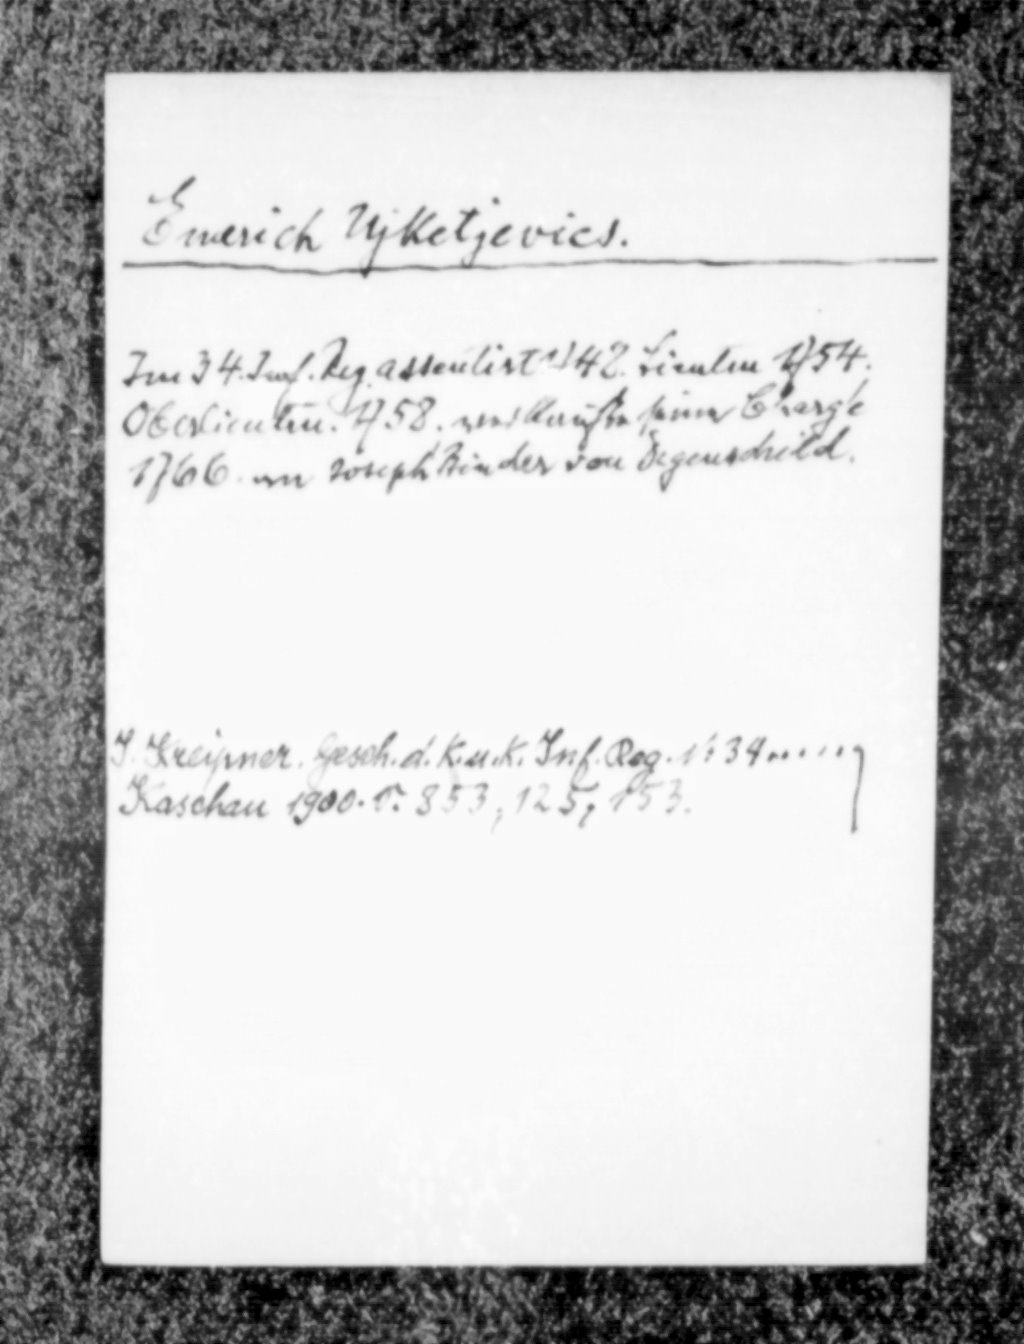 Emerich Ujketjevics.
Im 34. Inf. Reg. assentirt 1742. Lieutn 1754.
Oberlieutn. 1758. verkaufte seine Chargé
1766. an Joseph Binder von Degenschild.
J. Kreipner. Gesch. d. k. u. k. Inf. Reg. Nr 34.....
Kaschau 1900. S. 853, 125, 153.